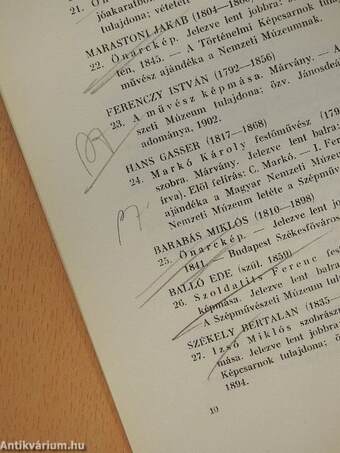 21. Ö
jóakaratból
tulajdona; vétele
MARASTONI JAKAB (1804—186
22. Önarckép. — Jelezve lent jobbra:
ten, 1845. — A Történelmi Képcsarnok tula
művész ajándéka a Nemzeti Múzeumnak.
FERENCZY ISTVÁN (1792—1856)
23. A művész képmása. Márvány. — A
szeti Múzeum tulajdona; özv. Jánosdeá
adománya, 1902.
HANS GASSER (1817—1868)
24. Markó Károly festőművész (179
szobra. Márvány. Jelezve lent balra:
írva). Elől felírás: C. Markó. — I. Fer
ajándéka a Magyar Nemzeti Múzeum
Nemzeti Múzeum letéte a Szépműv
BARABÁS MIKLÓS (1810—1898)
25. Önarckép. — Jelezve lent jobb
1841. — Budapest Székesfővá
BALLÓ EDE (szül. 1859)
26. Szoldatits Ferenc fest
képmása. Jelezve lent balra
— A Szépművészeti Múzeum tula
SZÉKELY BERTALAN (1835—
27. Izsó Miklós szobrász
mása. Jelezve lent jobbra:
Képcsarnok tulajdona; ö
1894.
10
Antikvárium.hu